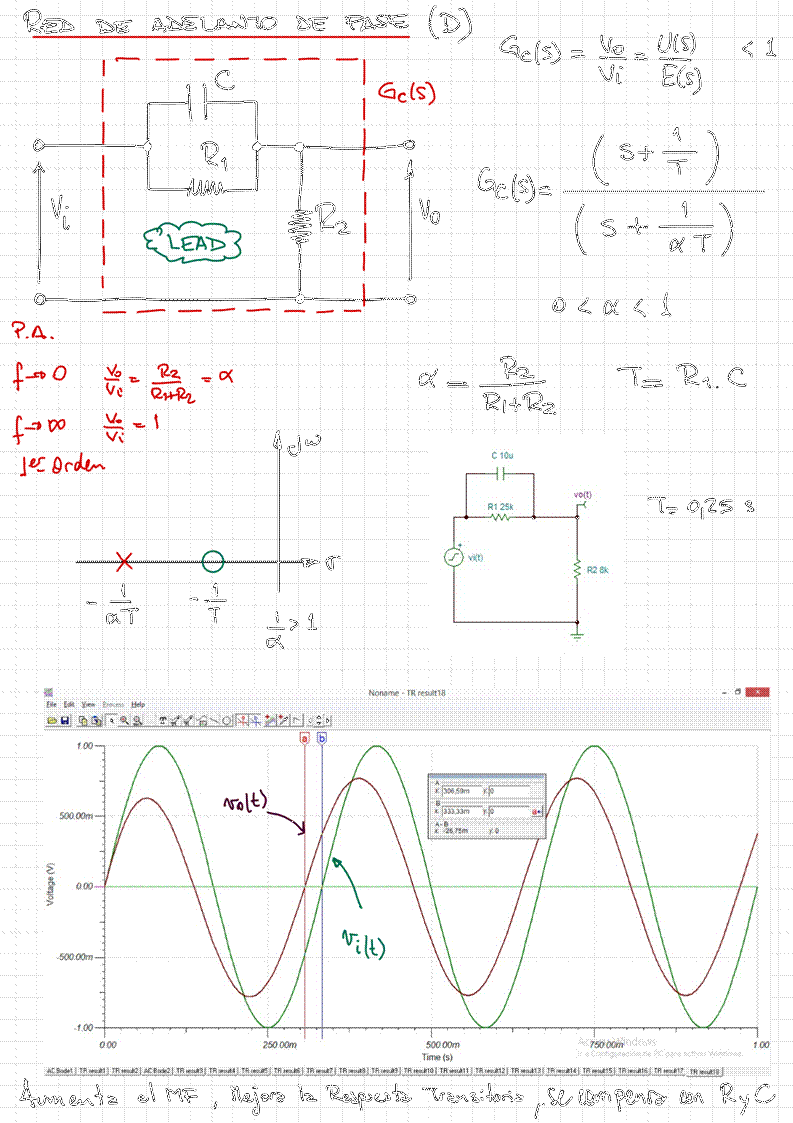 RED DE ADELANTO DE FASE (D)
Gc(s) = Vo/Vi = U(s)/E(s) < 1
C
Gc(s)
R1
Vi
R2
Vo
LEAD
Gc(s) = (s + 1/T) / (s + 1/αT)
0 < α < 1
P.A.
f→0 Vo/Vi = R2/R1+R2 = α
f→∞ Vo/Vi = 1
1er Orden
α = R2/R1+R2 T = R1.C
jω
σ
-1/αT
-1/T
1/α > 1
C 10u
R1 25k
vo(t)
vi(t)
R2 8k
T = 0,25 s
Noname - TR result18
File Edit View Process Help
a b
A
x: 306,59m y: 0
B
x: 333,33m y: 0
A - B
x: -26,75m y: 0
vo(t)
vi(t)
Voltage (V)
1.00
500.00m
0.00
-500.00m
-1.00
0.00 250.00m 500.00m 750.00m 1.00
Time (s)
Activar Windows
Ir a Configuración de PC para activar Windows.
AC Bode1 TR result1 TR result2 AC Bode2 TR result3 TR result4 TR result5 TR result6 TR result7 TR result8 TR result9 TR result10 TR result11 TR result12 TR result13 TR result14 TR result15 TR result16 TR result17 TR result18
Aumenta el MF, Mejora la Respuesta Transitoria, se compensa con R y C